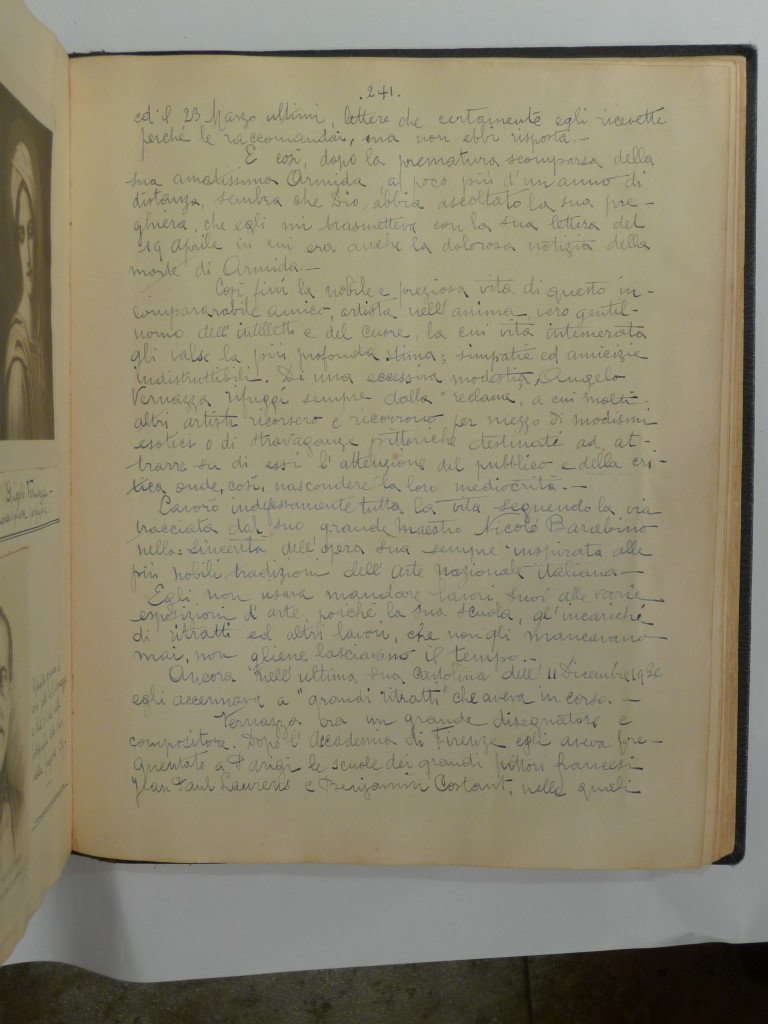 .241.
ed il 23 Marzo ultimi, lettere che certamente egli ricevette
perché le raccomandai, ma non ebbi risposta.—
E così, dopo la prematura scomparsa della
sua amatissima Armida, a poco più d'un anno di
distanza, sembra che Dio, abbia ascoltato la sua pre-
ghiera, che egli mi trasmetteva con la sua lettera del
19 aprile in cui era anche la dolorosa notizia della
morte di Armida.—
Così finì la nobile e preziosa vita di questo in-
comparabile amico, artista nell'anima, vero gentil-
uomo dell'intelletto e del cuore, la cui vita intemerata
gli valse la più profonda stima; simpatie ed amicizie
indistruttibili. Di una eccessiva modestia, Angelo
Vernazza rifuggì sempre dalla "reclame", a cui molti
altri artisti ricorsero e ricorrono per mezzo di modismi
esotici o di stravaganze pittoriche destinate ad at-
trarre su di essi l'attenzione del pubblico e della cri-
tica onde, così, nascondere la loro mediocrità.—
Lavorò indefessamente tutta la vita seguendo la via
tracciata dal suo grande maestro Nicolò Barabino
nella sincerità dell'opera sua sempre inspirata alle
più nobili tradizioni dell'Arte nazionale italiana—
Egli non usava mandare lavori suoi alle varie
esposizioni d'arte, poiché la sua scuola, gl'incarichi
di ritratti ed altri lavori, che non gli mancavano
mai, non gliene lasciavano il tempo.—
Ancora nell'ultima sua cartolina dell'11 Dicembre 1936
egli accennava a "grandi ritratti" che aveva in corso.—
Vernazza era un grande disegnatore e
compositore. Dopo l'Accademia di Firenze egli aveva fre-
quentato a Parigi le scuole dei grandi pittori francesi
Jean Paul Laurens e Benjamin Costant, nelle quali
Angelo Vernazza